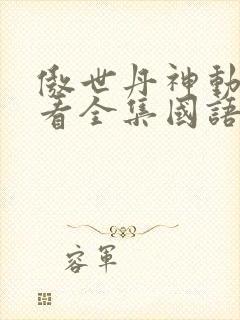 傲世丹神動
看全集國語
容軍